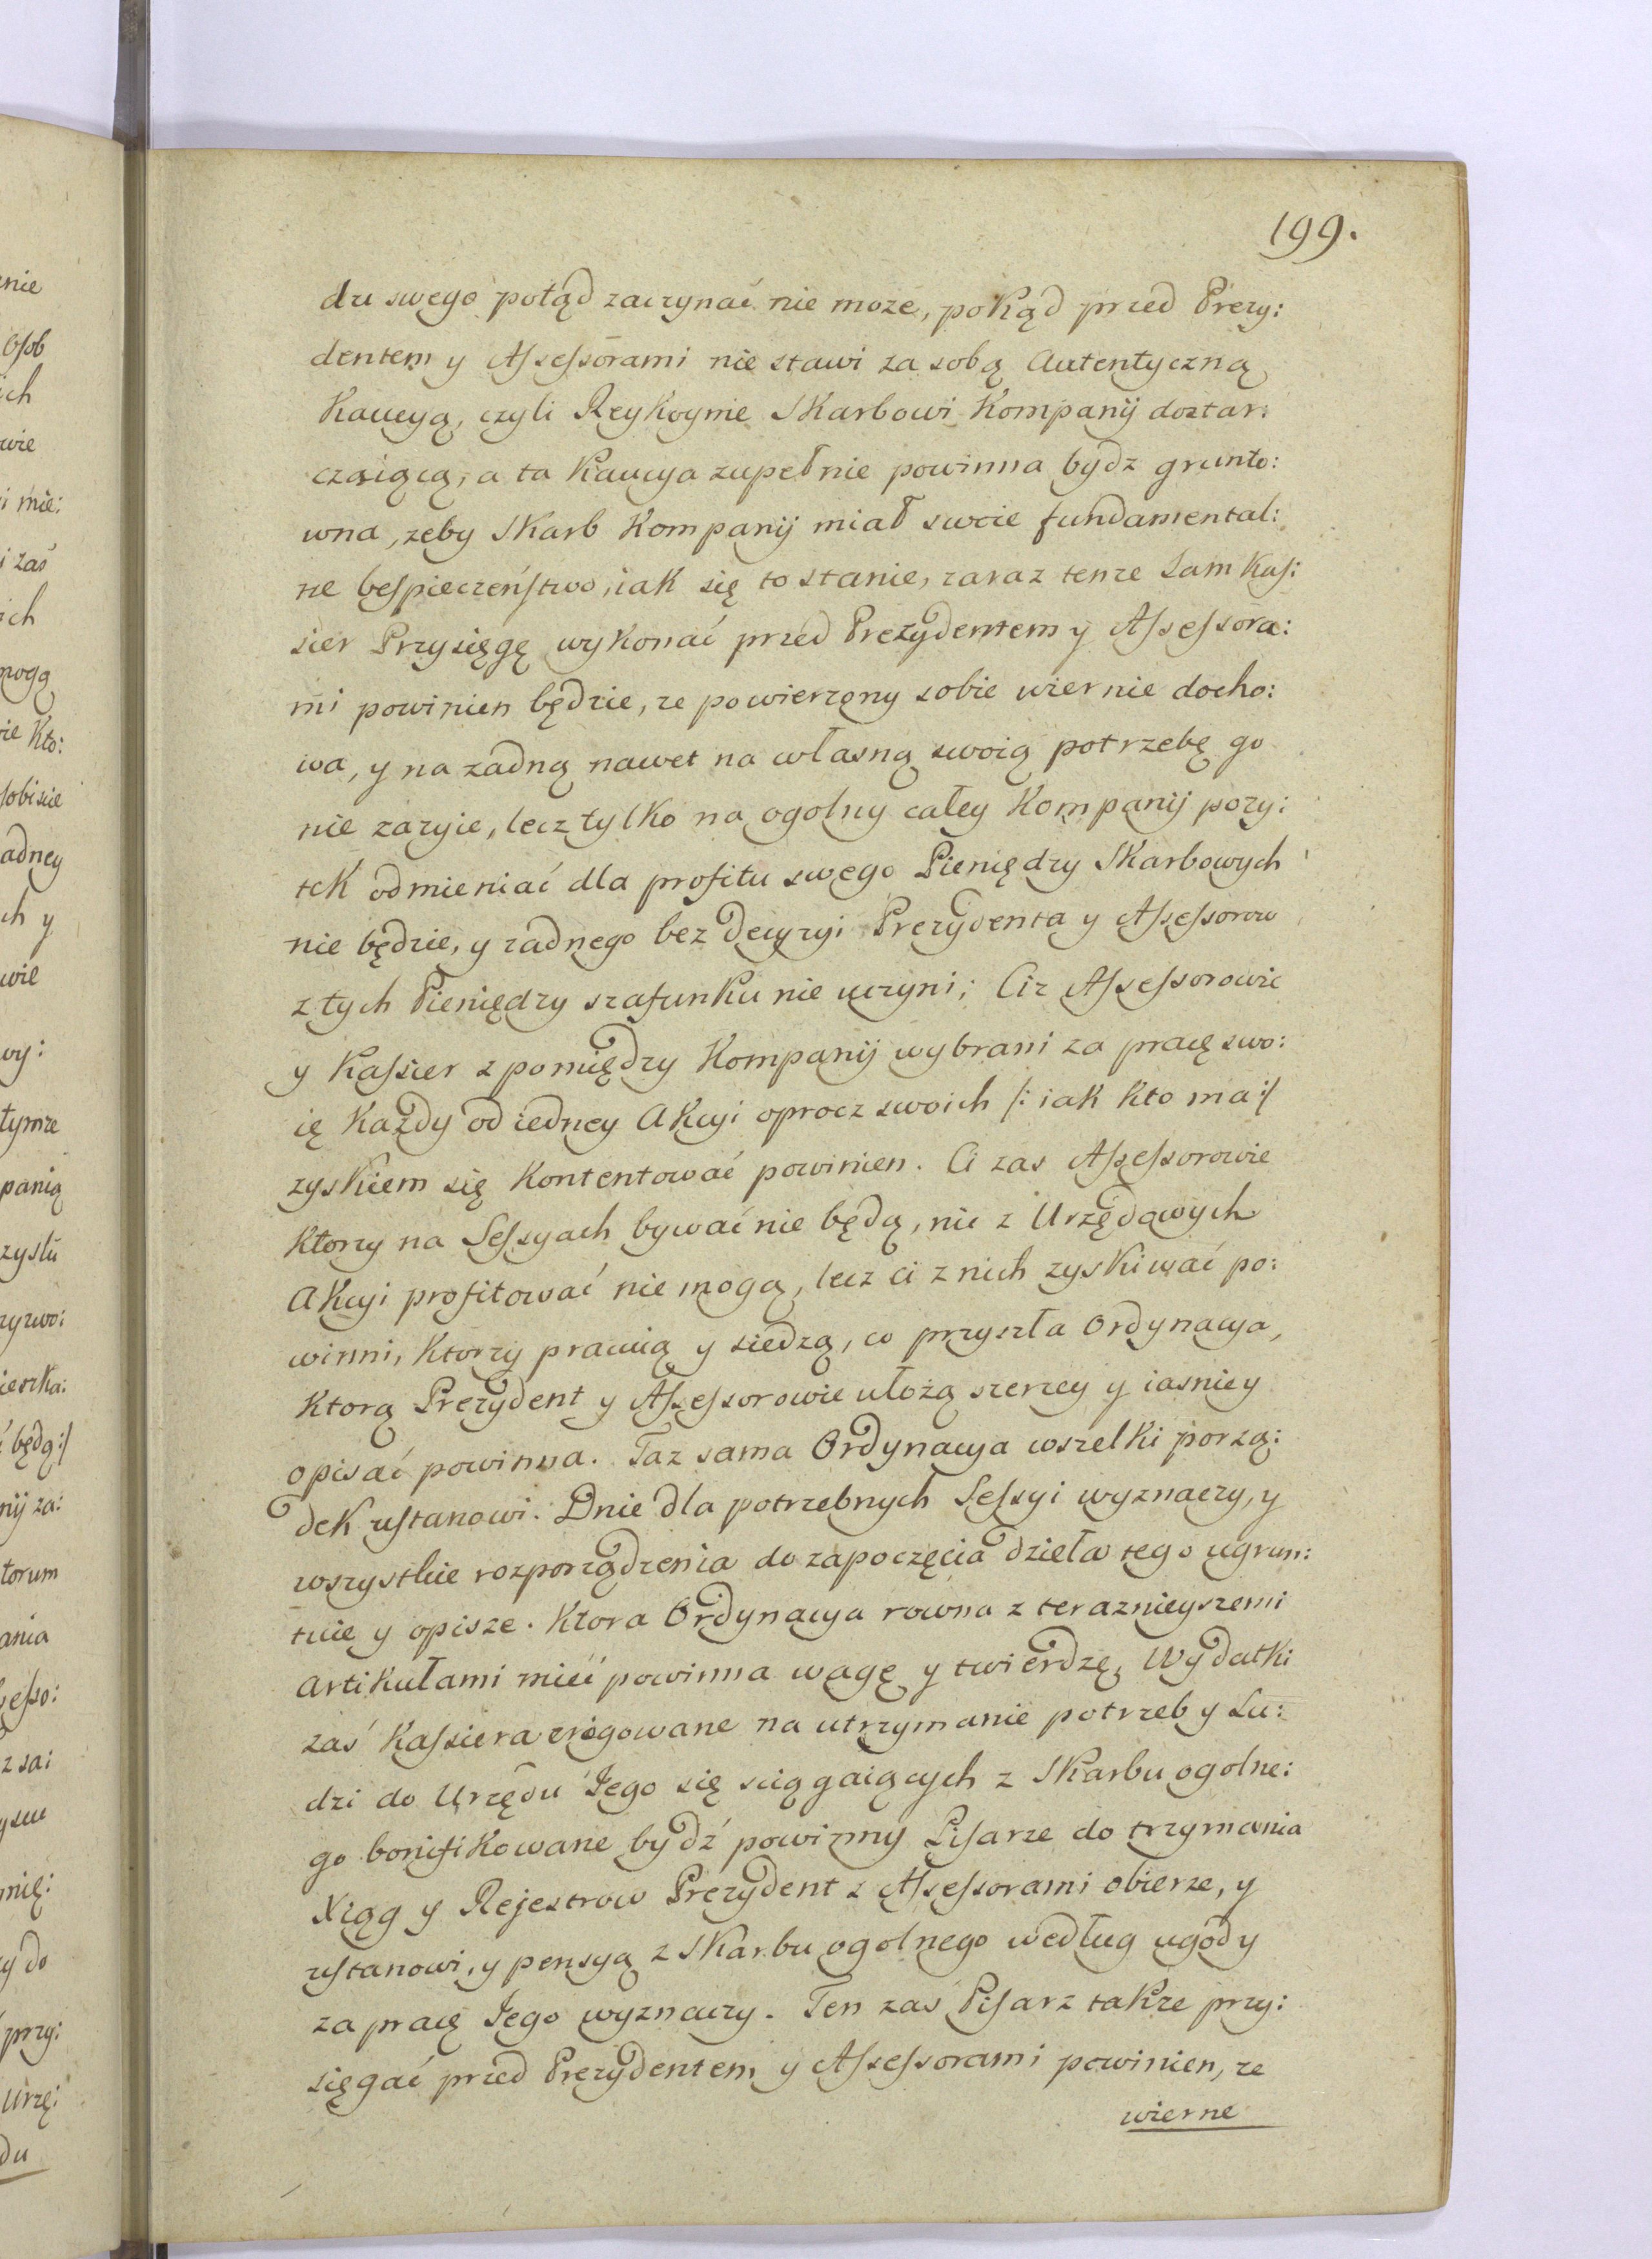 199.
du swego potąd zaczynać nie moze, pokąd przed Prezy:
dentem y Assessorami nie stawi za sobą Autentyczną
Kaucyą, czyli Reykoymie Skarbowi Kompanij dostar:
czaiącą, a ta Kaucya zupełnie powinna bydz grunto:
wna, zeby Skarb Kompanij miał swoie fundamental:
ne bespieczeństwo, iak się to stanie, zaraz tenze Sam Kas:
sier Przysięgę wykonać przed Prezydentem y Assessora:
mi powinien będzie, ze powierzony sobie wiernie docho:
wa, y na zadną nawet na własną swoią potrzebę go
nie zazyie, lecz tylko na ogolny całey Kompanij pozy:
tek odmieniać dla profitu swego Pieniędzy Skarbowych
nie będzie, y zadnego bez decyzyi Prezydenta y Assessorow
z tych Pieniędzy szafunku nie uczyni; Ciz Assessorowie
y Kassier z pomiędzy Kompanij wybrani za pracę swo:
ię Kazdy od iedney Akcyi oprocz swoich /: iak kto ma :/
zyskiem się Kontentować powinien. Ci zas Assessorowie
Ktorzy na Sessyach bywać nie będą, nic z Urzędowych
Akcyi profitować nie mogą, lecz ci z nich zyskiwać po:
winni, Ktorzy pracuią y siedzą, co przyszła Ordynacya,
Ktorą Prezydent y Assessorowie ułożą szerzey y iasniey
opisać powinna. Taz sama Ordynacya wszelki porzą:
dek ustanowi. Dnie dla potrzebnych Sessyi wyznaczy, y
wszystkie rozporządzenia do zapoczęcia dzieła tego ugrun:
tuie y opisze. Ktora Ordynacya rowna z teraznieyszemi
Artikułami mieć powinna wagę y twierdzę, Wydatki
zaś Kassiera erogowane na utrzymanie potrzeb y Lu:
dzi do Urzędu Jego się sciągaiących z Skarbu ogolne:
go bonifikowane bydź powinny Pisarze do trzymania
Xiąg y Rejestrow Prezydent z Assessorami obierze, y
ustanowi, y pensyą z Skarbu ogolnego według ugody
za pracę Jego wyznaczy. Ten zas Pisarz takze przy:
sięgać przed Prezydentem y Assessorami powinien, ze
wierne